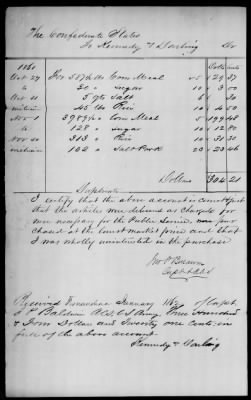 The Confederate States
To Kennedy & Darling Dr
1861
Oct 29 For 587½ lbs Corn Meal 5 $ 29.37
to 30 " Sugar 10 3.00
Oct 31 5 qts Salt 6 30
inclusive 45 lbs Rice 10 4.50
Nov 1 3989½ " Corn Meal 5 199.48
to 128 " Sugar 10 12.80
Nov 30 313 " Rice 10 31.31
inclusive 102 " Salt Pork 20 20.46
Dollars $304.21
Duplicate
I certify that the above account is correct & just
that the articles were delivered as charged for
were necessary for the Public Service, were pur
chased at the lowest market price and that
I was wholly uninterested in the purchase
Capt
Received January 16 of Capt
J P Baldwin ACS CS Army Three Hundred
& Four Dollars and Twenty one cents in
full of the above account.
Kennedy & Darling